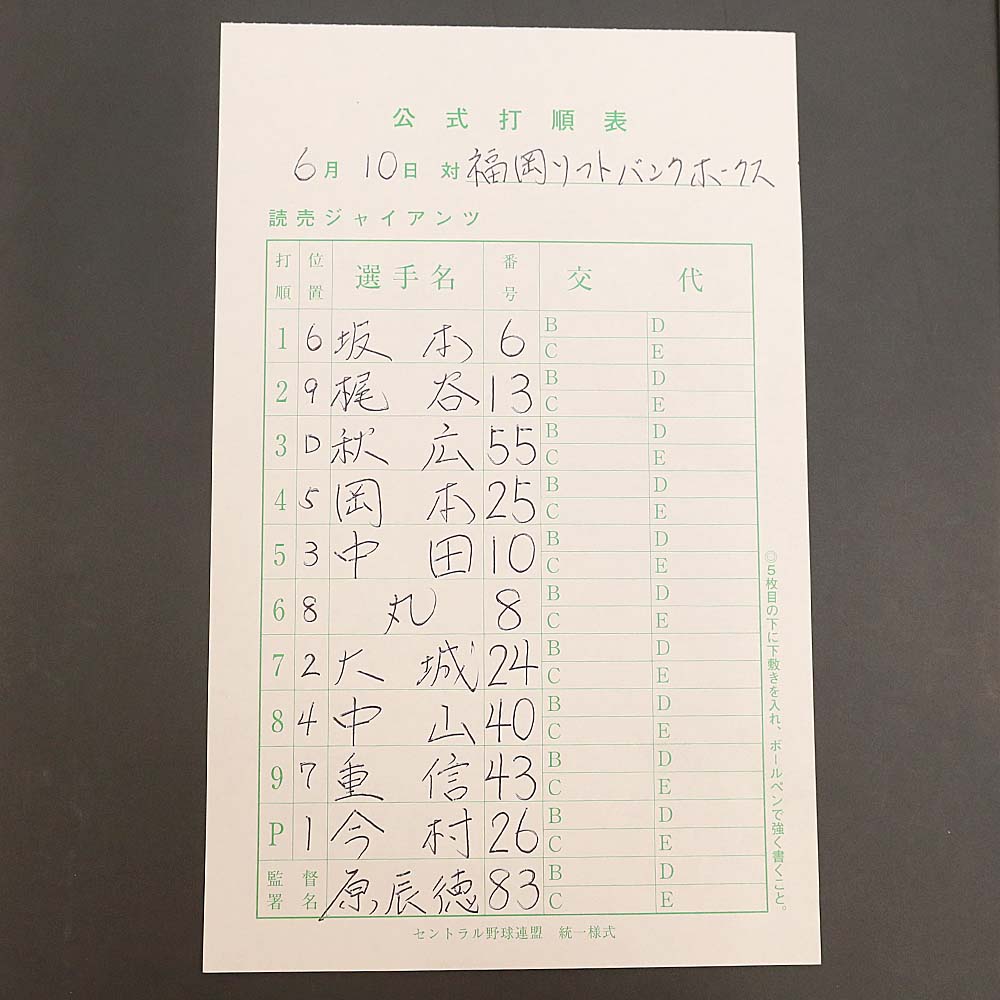 公式打順表
6月10日 対 福岡ソフトバンクホークス
読売ジャイアンツ
打順 位置 選手名 番号 交代
1 6 坂本 6 B D C E
2 9 梶谷 13 B D C E
3 D 秋広 55 B D C E
4 5 岡本 25 B D C E
5 3 中田 10 B D C E
6 8 丸 8 B D C E
7 2 大城 24 B D C E
8 4 中山 40 B D C E
9 7 重信 43 B D C E
P 1 今村 26 B D C E
監督署名 原辰徳 83 B D C E
セントラル野球連盟 統一様式
◎5枚目の下に下敷きを入れ、ボールペンで強く書くこと。